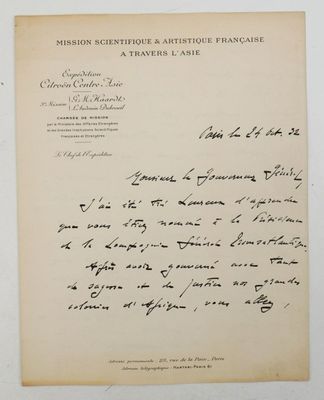 MISSION SCIENTIFIQUE & ARTISTIQUE FRANÇAISE
A TRAVERS L'ASIE
Expédition
Citroën Centre Asie
3e Mission G.M. Haardt
L. Audouin Dubreuil
CHARGÉE DE MISSION
par le Ministère des Affaires Étrangères
et les Grandes Institutions Scientifiques
Françaises et Étrangères
Le Chef de l'Expédition
Paris le 24 Oct. 32
Monsieur le Gouverneur Général,
J'ai été très heureux d'apprendre
que vous étiez nommé à la Présidence
de la Compagnie Générale Transatlantique.
Après avoir gouverné avec tant
de sagesse et de justice nos grandes
colonies d'Afrique, vous allez,
Adresse permanente : 28, rue de la Paix, Paris
Adresse télégraphique : HARTASI-PARIS 61